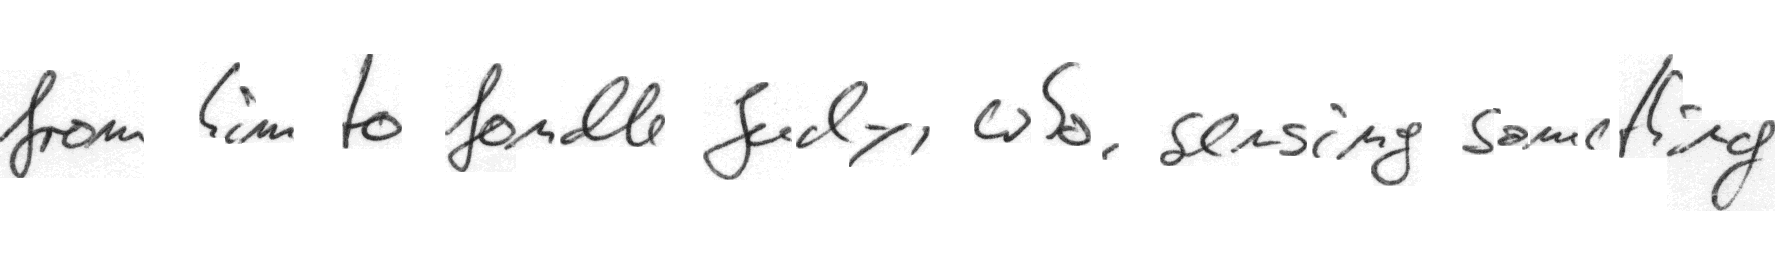 from him to fondle Judy, who, sensing something